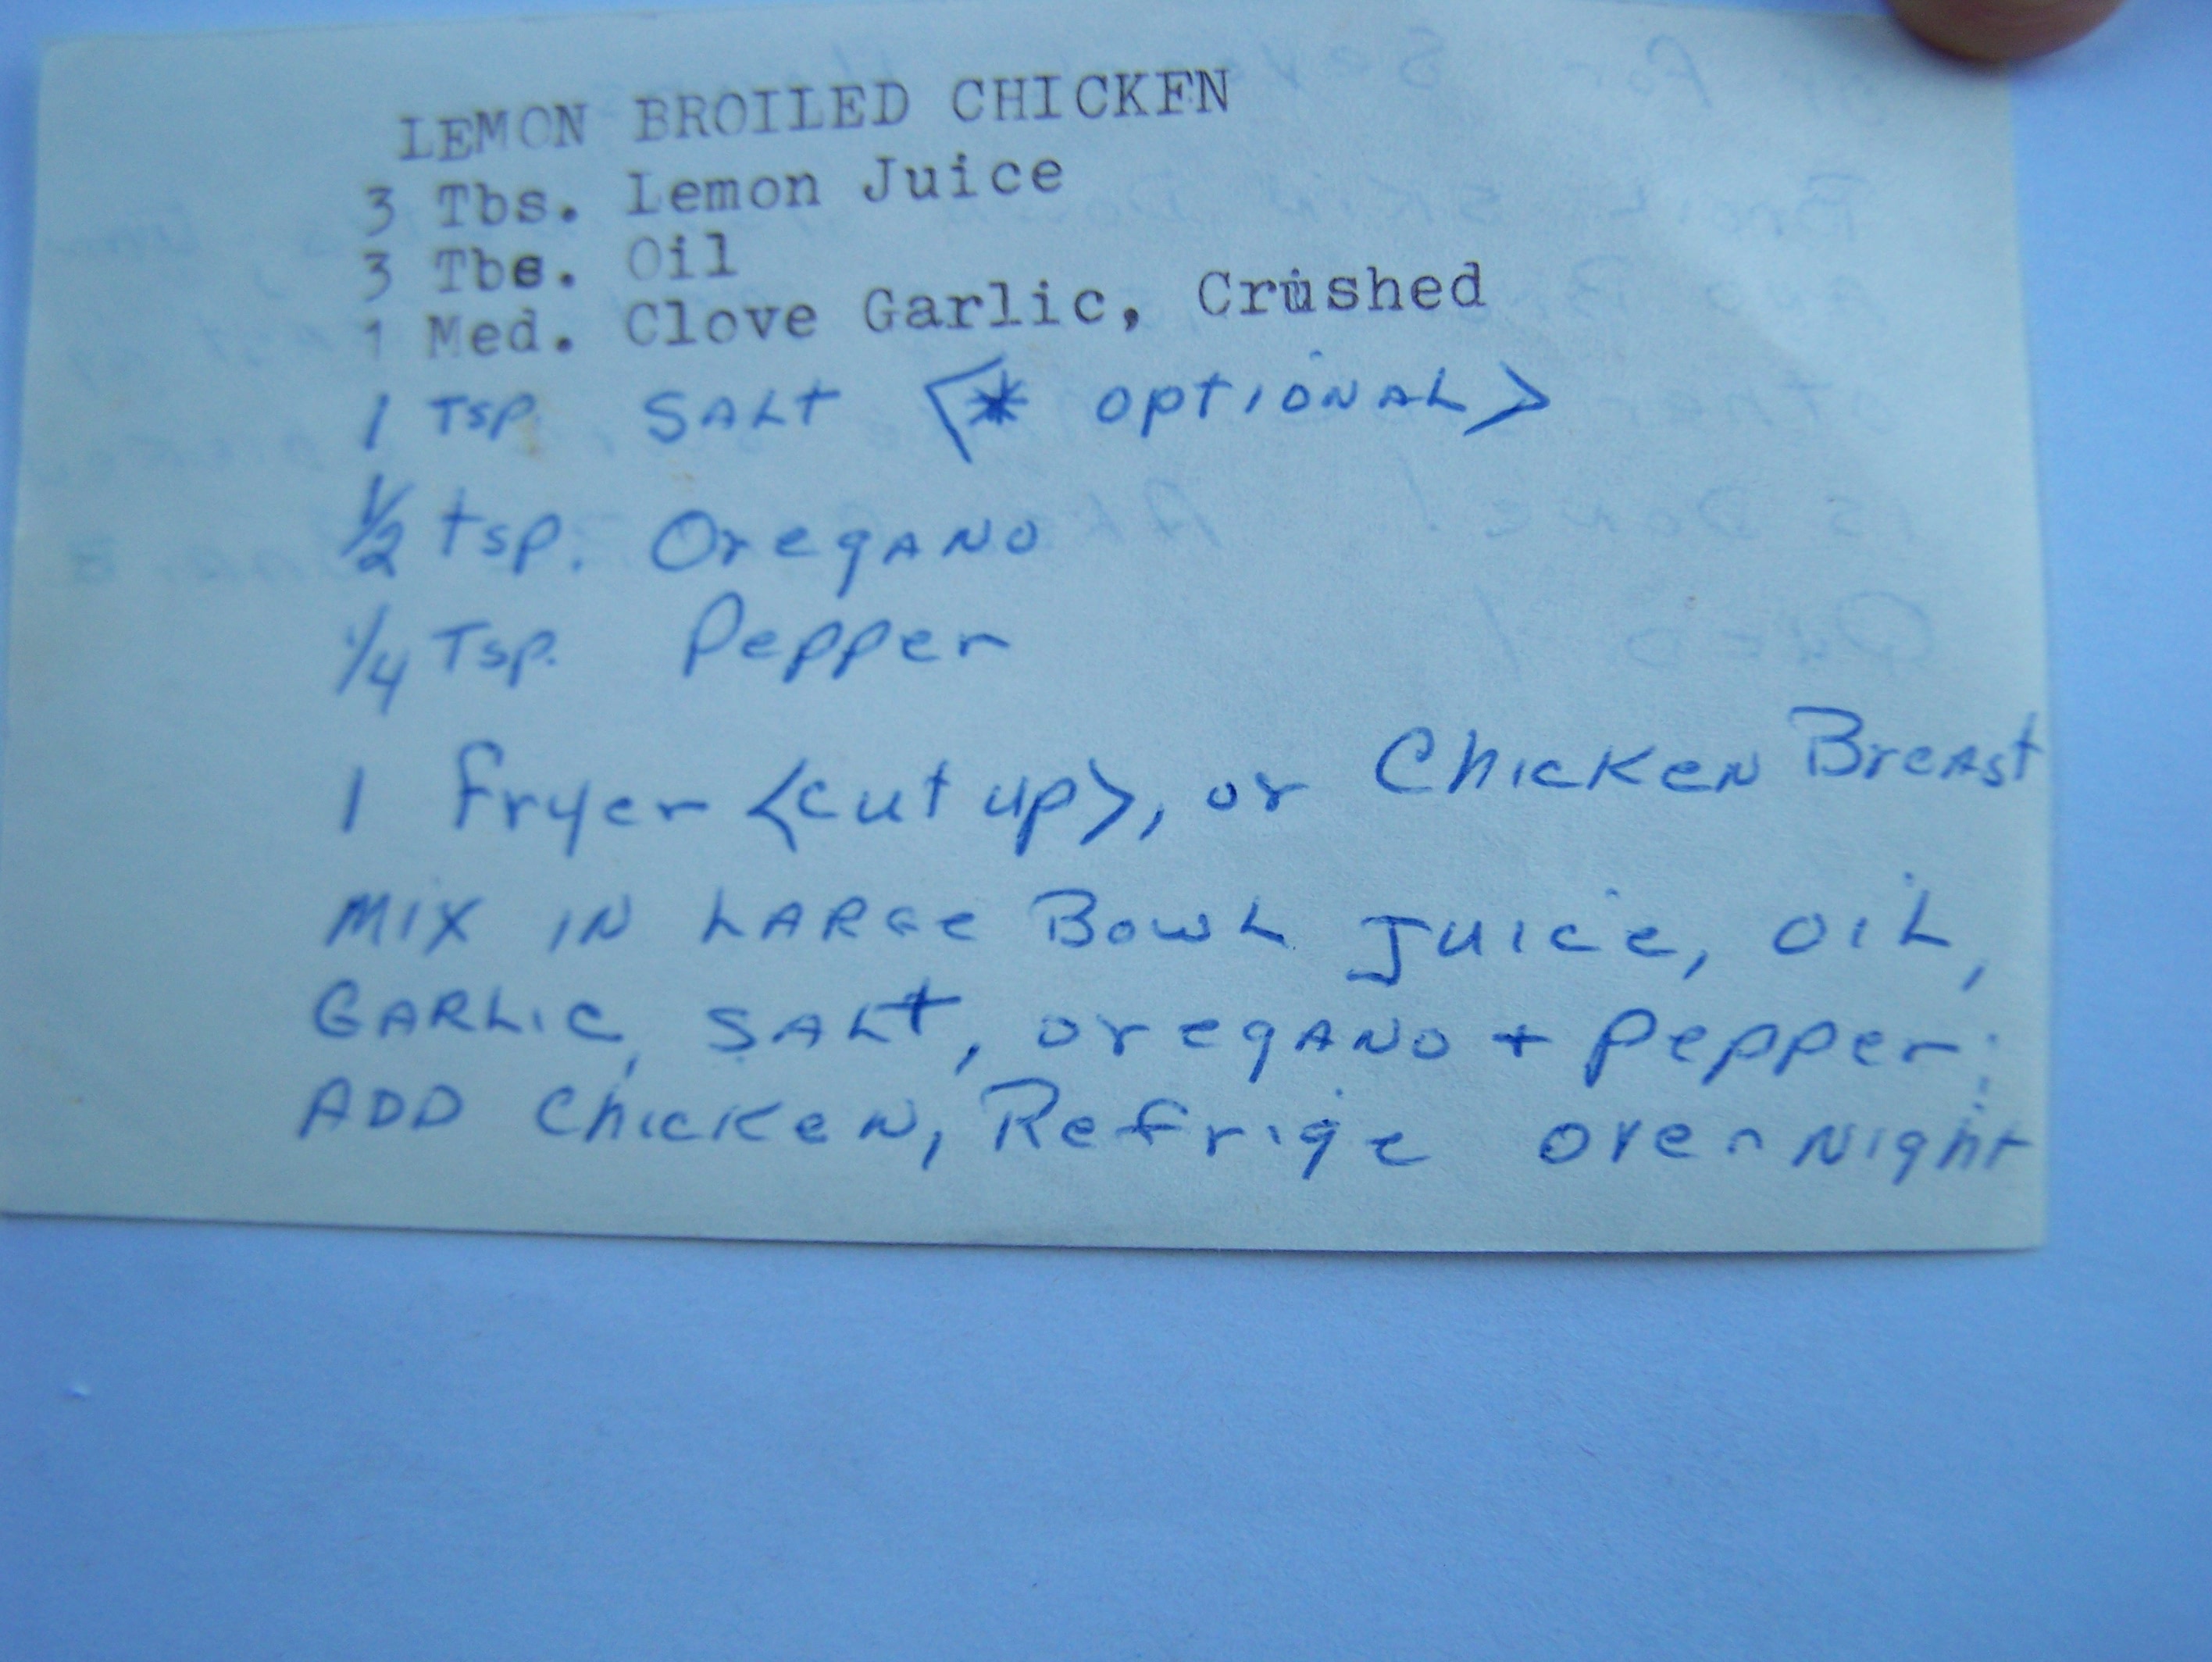 LEMON BROILED CHICKEN
3 Tbs. Lemon Juice
3 Tbs. Oil
1 Med. Clove Garlic, Crushed
1 Tsp. SALt <* optionAL>
½ tsp. OregANO
¼ Tsp. Pepper
1 fryer <cut up>, or ChickeN BreAst
MIX IN LARGe BowL Juice, OiL,
GARLic, SALt, oregANO + pepper;
ADD ChickeN, Refrige overNight